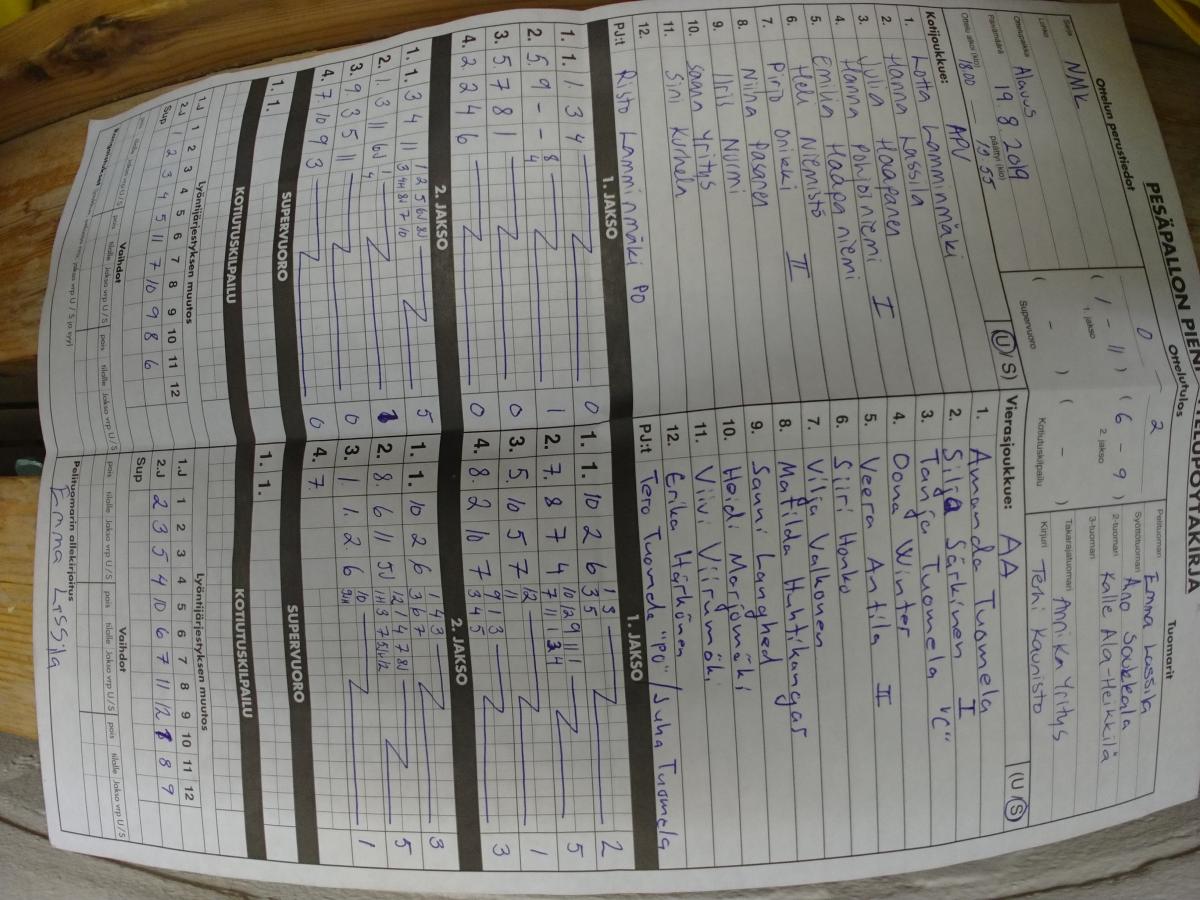 PESÄPALLON PIENI OTTELUPÖYTÄKIRJA
Ottelun perustiedot
Sarja NMK
Lohko
Ottelupaikka Alavus
Päivämäärä 19 8. 2019
Ottelu alkoi (klo) 18.00 päättyi (klo) 19.55
Ottelutulos
0 – 2
( 1 – 11 ) ( 6 – 9 )
1. jakso 2. jakso
( – ) ( – )
Supervuoro Kotiutuskilpailu
Tuomarit
Pelituomari Emma Lassila
Syöttötuomari Arto Saukkala
2-tuomari Kalle Ala-Heikkilä
3-tuomari
Takarajatuomari Annika Yritys
Kirjuri Tehi Kaunisto
Kotijoukkue: APV (U/S)
1. Lotta Lamminmäki
2. Hanna Lassila
3. Julia Haapanen I
4. Hanna Pohjoisniemi
5. Emilia Haapaniemi
6. Heli Niemistö
7. Pirjo Onikki II
8. Niina Paananen
9. Iiris Nurmi
10. Saana Yritys
11. Sini Kuhela
12.
PJ:t Risto Lamminmäki PO
1. JAKSO
1. 1. 1. 3 4 0
2. 5. 9 - - 8 4 1
3. 5 7 8 1 0
4. 2 2 4 6 0
2. JAKSO
1. 1. 3 4 11 5
2. 1. 3 11 1
3. 9 3 5 11 0
4. 7. 10 9 3 0
SUPERVUORO
1. 1.
KOTIUTUSKILPAILU
Lyöntijärjestyksen muutos
1.J 1 2 3 4 5 6 7 8 9 10 11 12
2.J 1 2 3 4 5 11 7 10 9 8 6
Sup
Vaihdot
pois tilalle Jakso vrp U/S pois tilalle Jakso vrp U/S pois tilalle Jakso vrp U/S
Vierasjoukkue: AA (U/S)
1. Amanda Tuomela
2. Silja Särkinen I
3. Tanja Tuomela "C"
4. Oona Winter
5. Veera Anttila I
6. Siiri Honko
7. Vilja Valkonen
8. Matilda Huhtikangas
9. Sanni Langhed
10. Heidi Marjomäki
11. Viivi Viirumäki
12. Erika Härkönen
PJ:t Tero Tuomela "PO" / Juha Tuomela
1. JAKSO
1. 1. 10 2 6 1 3 3 5 2
2. 7. 8 7 4 5
3. 5. 10 5 7 12 11 1
4. 8. 2 10 7 9 1 3 3 4 5 3
2. JAKSO
1. 1. 10 2 6 1 4 3 3 6 7 3
2. 8. 6 11 5
3. 1. 2. 6 10 1
4. 7
SUPERVUORO
1. 1.
KOTIUTUSKILPAILU
Lyöntijärjestyksen muutos
1.J 1 2 3 4 5 6 7 8 9 10 11 12
2.J 2 3 5 4 10 6 7 11 12 1 8 9
Sup
Vaihdot
pois tilalle Jakso vrp U/S pois tilalle Jakso vrp U/S pois tilalle Jakso vrp U/S
Pelituomarin allekirjoitus
Emma Lassila